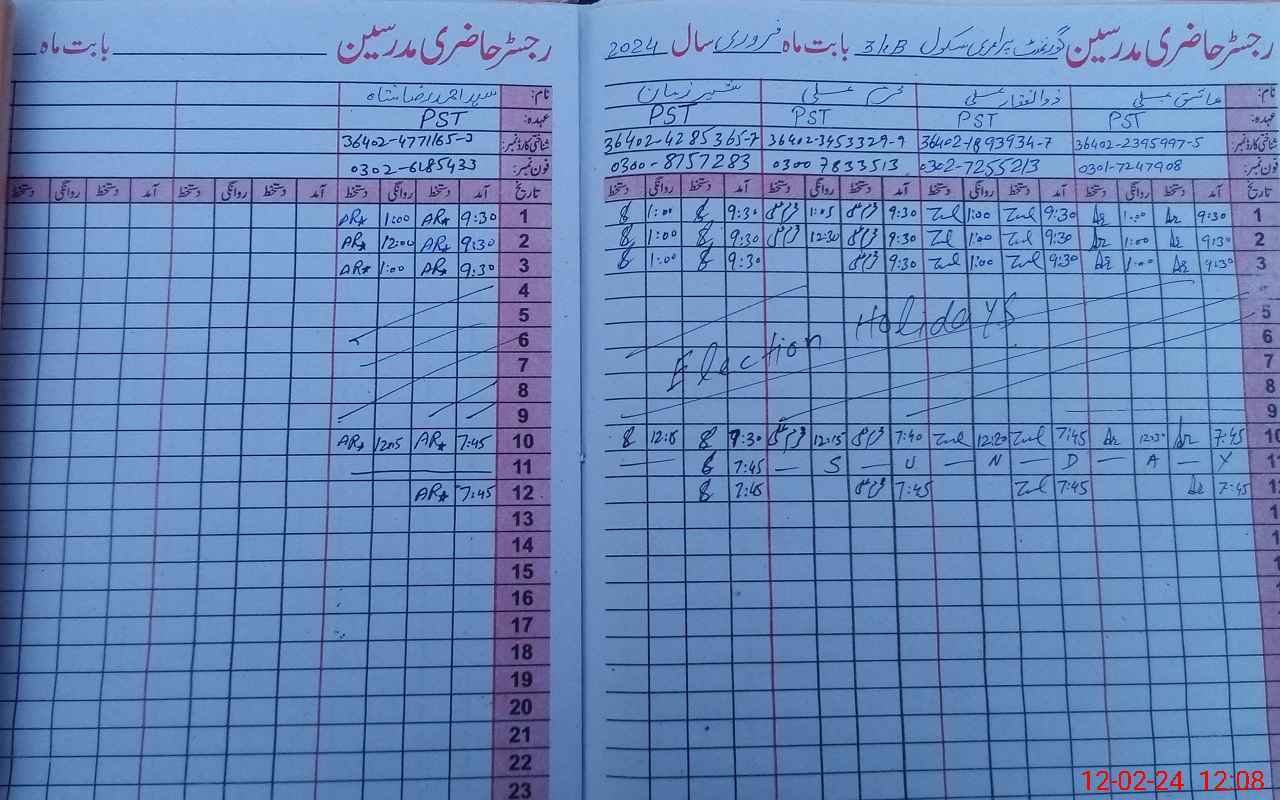 رجسٹر حاضری مدرسین گورنمنٹ پرائمری سکول 31/EB بابت ماہ فروری سال 2024
نام: عاشق علی ذوالفقار علی علی شیر زمان
عہدہ: PST PST PST PST
شناختی کارڈ نمبر: 36402-2395997-5 36402-1893934-7 36402-3453329-9 36402-4285365-7
فون نمبر: 0301-7247908 0302-7255213 0300 7833513 0300-8757283
تاریخ آمد دستخط روانگی دستخط آمد دستخط روانگی دستخط آمد دستخط روانگی دستخط آمد دستخط روانگی دستخط
1 9:30 1:00 9:30 Zul 1:00 Zul 9:30 1:05 9:30 1:00
2 9:30 1:00 9:30 Zul 1:00 Zul 9:30 12:30 9:30 1:00
3 9:30 1:00 9:30 Zul 1:00 Zul 9:30 9:30 1:00
Election Holidays
5
6
7
8
9
10 7:45 12:30 7:45 Zul 12:20 Zul 7:40 12:15 9:30 12:15
— S — U — N — D — A — Y
7:45
7:45 7:45 Zul 7:45 7:45
رجسٹر حاضری مدرسین بابت ماہ
سید احمد رضا شاہ
PST
36402-4771165-3
0302-6185433
تاریخ آمد دستخط روانگی دستخط آمد دستخط روانگی دستخط آمد دستخط روانگی دستخط
1 9:30 AR 1:00 AR
2 9:30 AR 12:00 AR
3 9:30 AR 1:00 AR
4
5
6
7
8
9
10 7:45 AR 12:05 AR
11
12 7:45 AR
13
14
15
16
17
18
19
20
21
22
23
12-02-24 12:08